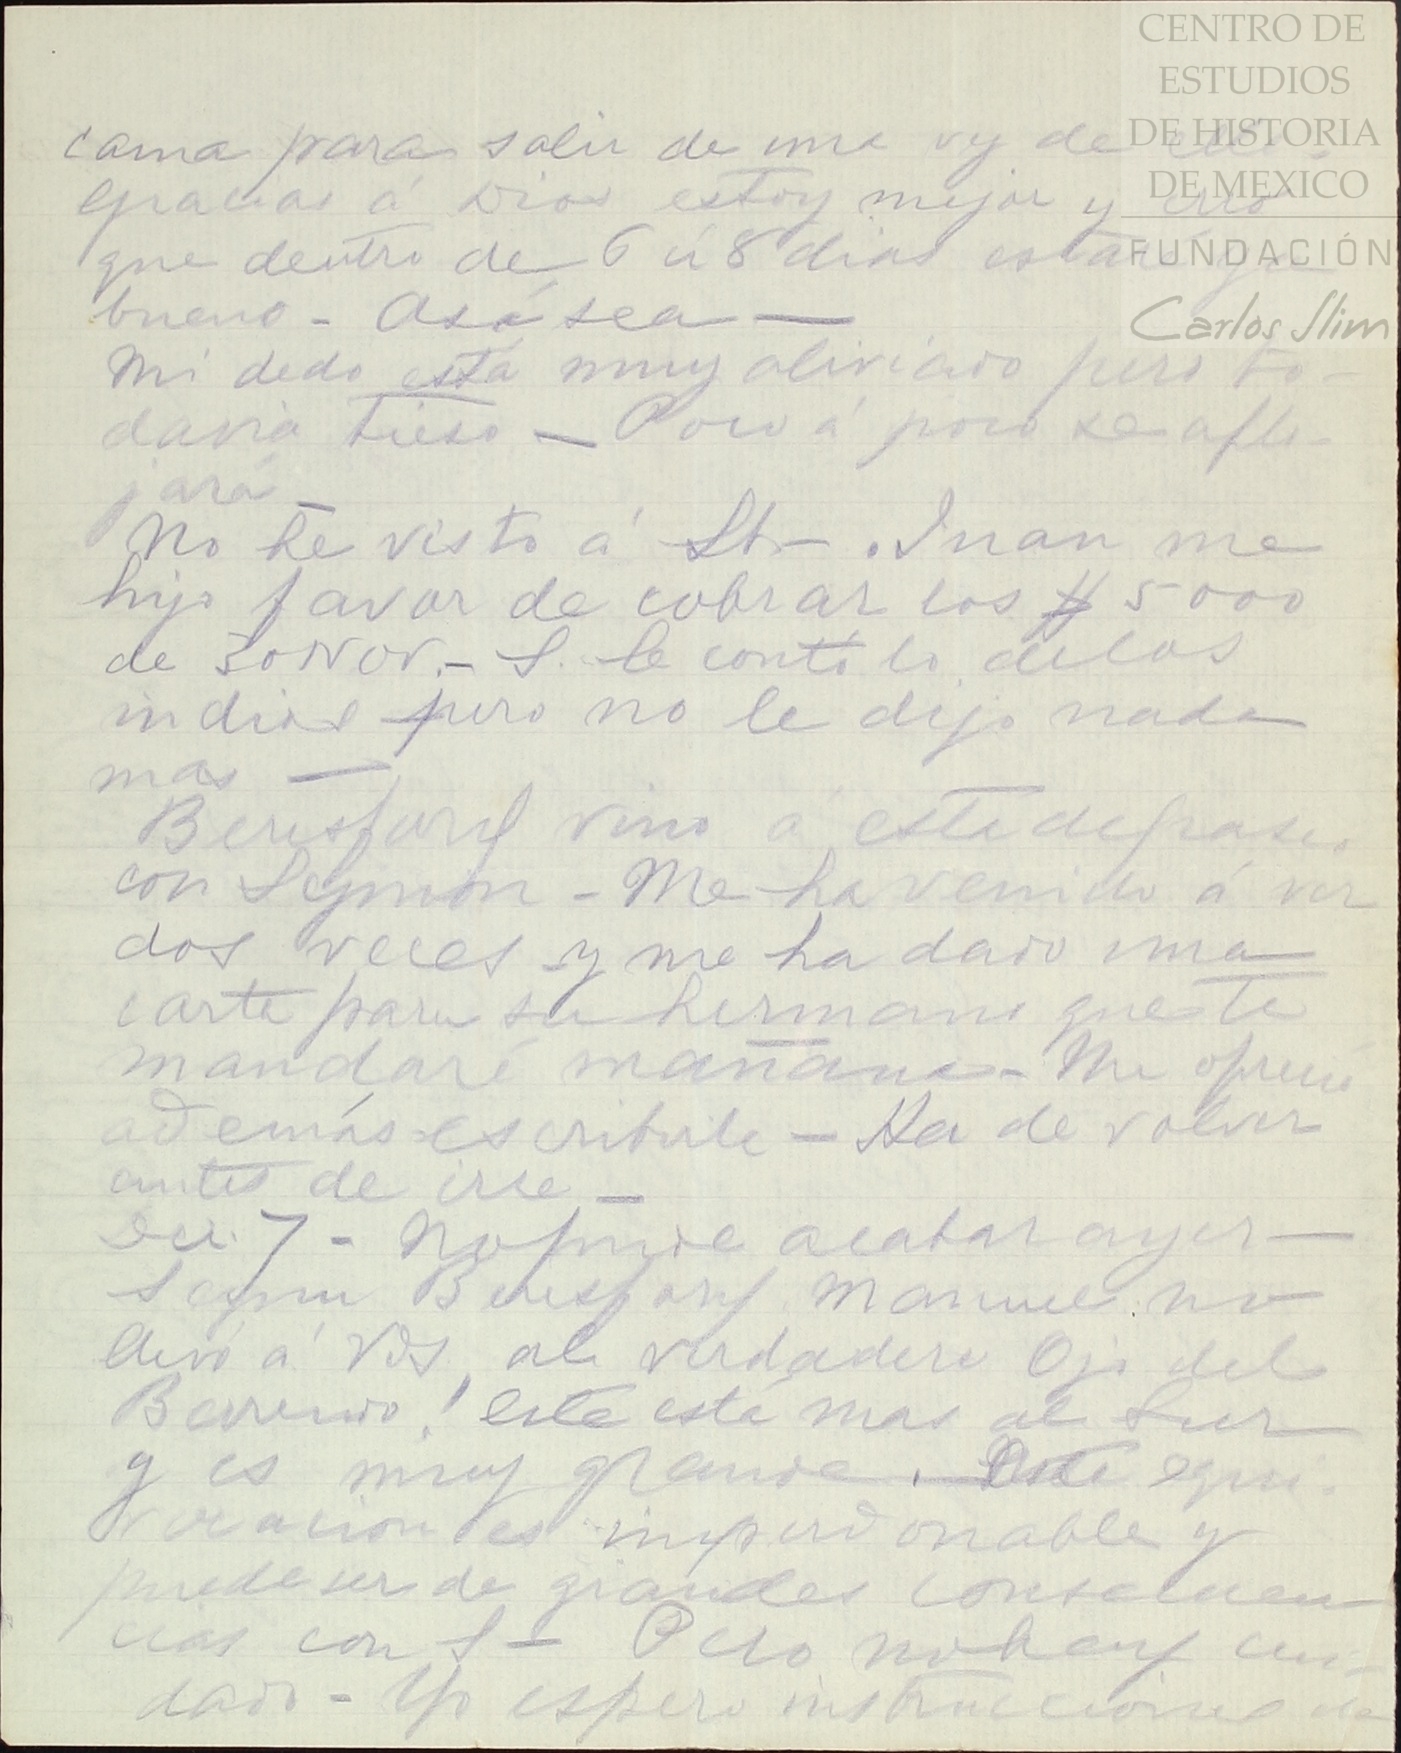 CENTRO DE
ESTUDIOS
DE HISTORIA
DE MEXICO
FUNDACIÓN
Carlos Slim
cama para salir de una vez de
Gracias á Dios estoy mejor y creo
que dentro de 6 ú 8 dias estaré ya
bueno - Asi sea —
Mi dedo está muy aliviado pero to-
davia tieso — Poco á poco se aflo-
jará —
No he visto á St- . Juan me
hizo favor de cobrar los $ 5000
de 30 Nov. - S. le contó lo de los
indios pero no le dijo nada
mas —
Beresford vino á este de paseo
con Seymon - Me ha venido á ver
dos veces y me ha dado una
carta para su hermano que te
mandaré mañana - Me ofreció
además escribirle — Ha de volver
antes de irse —
Dec. 7 - No pude acabar ayer —
Segun Beresford Manuel no
llevó á Vds. al verdadero Ojo del
Berrendo! este está mas al Sur
y es muy grande. Esta equi-
vocacion es imperdonable y
puede ser de grandes consecuen
cias con S — Pero no hay cui-
dado - Yo espero instrucciones de